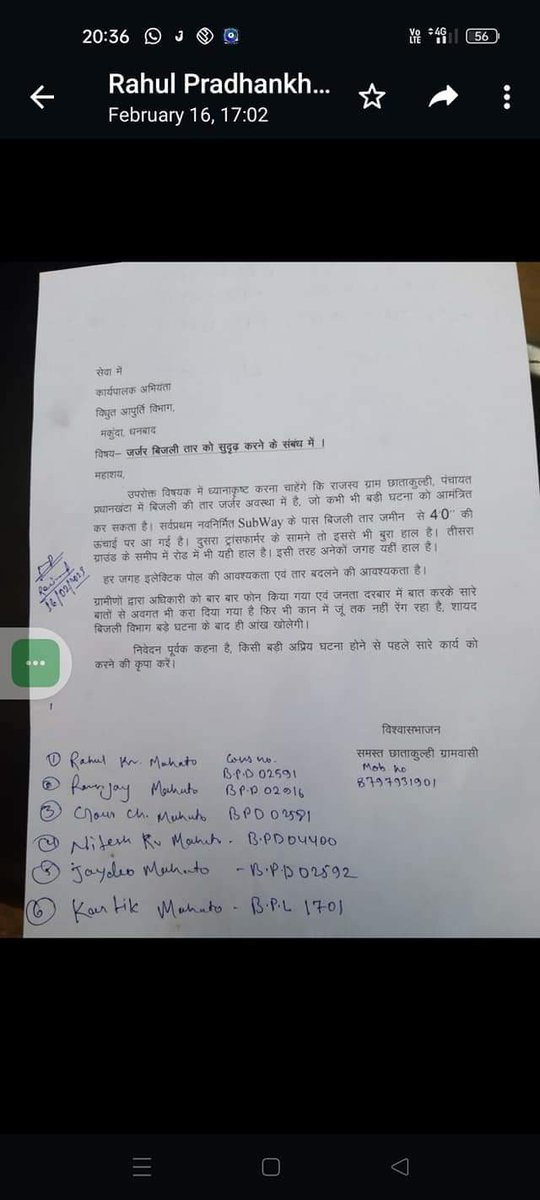 20:36
Vo LTE 4G 56
Rahul Pradhankh...
February 16, 17:02
सेवा में
कार्यपालक अभियंता
विधुत आपुर्ति विभाग,
मकुंदा, धनबाद
विषय– जर्जर बिजली तार को सुदृढ़ करने के संबंध में ।
महाशय,
उपरोक्त विषयक में ध्यानाकृष्ट करना चाहेंगे कि राजस्व ग्राम छाताकुल्ही, पंचायत
प्रधानखंटा में बिजली की तार जर्जर अवस्था में है, जो कभी भी बडी घटना को आमंत्रित
कर सकता है। सर्वप्रथम नवनिर्मित SubWay के पास बिजली तार जमीन से 4'0" की
ऊचाई पर आ गई है। दुसरा ट्रांसफार्मर के सामने तो इससे भी बुरा हाल है। तीसरा
ग्राउंड के समीप में रोड में भी यही हाल है। इसी तरह अनेकों जगह यहीं हाल है।
हर जगह इलेक्टिक पोल की आवश्यकता एवं तार बदलने की आवश्यकता है।
ग्रामीणों द्वारा अधिकारी को बार बार फोन किया गया एवं जनता दरबार में बात करके सारे
बातों से अवगत भी करा दिया गया है फिर भी कान में जूं तक नहीं रेंग रहा है, शायद
बिजली विभाग बड़े घटना के बाद ही आंख खोलेगी।
निवेदन पूर्वक कहना है, किसी बड़ी अप्रिय घटना होने से पहले सारे कार्य को
करने की कृपा करें।
विश्वासभाजन
समस्त छाताकुल्ही ग्रामवासी
Mob no
8797931901
① Rahul Kr. Mahato Cons no. BPD 02591
② Ramjay Mahato BPD 02916
③ Gour Ch. Mahato BPD 02591
④ Nitesh Kr Mahato - BPD 04400
⑤ Jaydeo Mahato - BPD 02592
⑥ Kartik Mahato - B.P.L 1701
16/02/2023